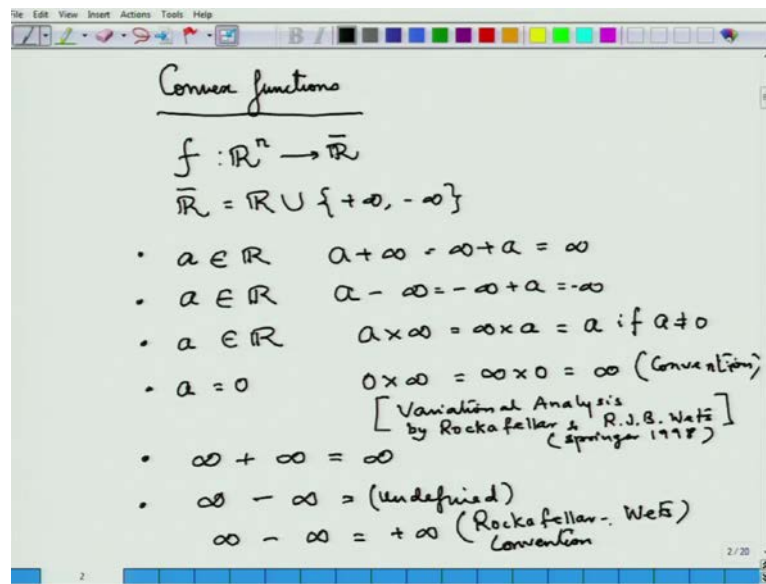 File Edit View Insert Actions Tools Help
B I
Convex functions
f : ℝⁿ → ℝ̄
ℝ̄ = ℝ ∪ {+∞, -∞}
• a ∈ ℝ a + ∞ = ∞ + a = ∞
• a ∈ ℝ a - ∞ = - ∞ + a = -∞
• a ∈ ℝ a × ∞ = ∞ × a = a if a ≠ 0
• a = 0 0 × ∞ = ∞ × 0 = ∞ (Convention)
[Variational Analysis
by Rockafellar & R.J.B. Wets]
(Springer 1998)
• ∞ + ∞ = ∞
• ∞ - ∞ = (undefined)
∞ - ∞ = + ∞ (Rockafellar - Wets)
Convention
2/20
2